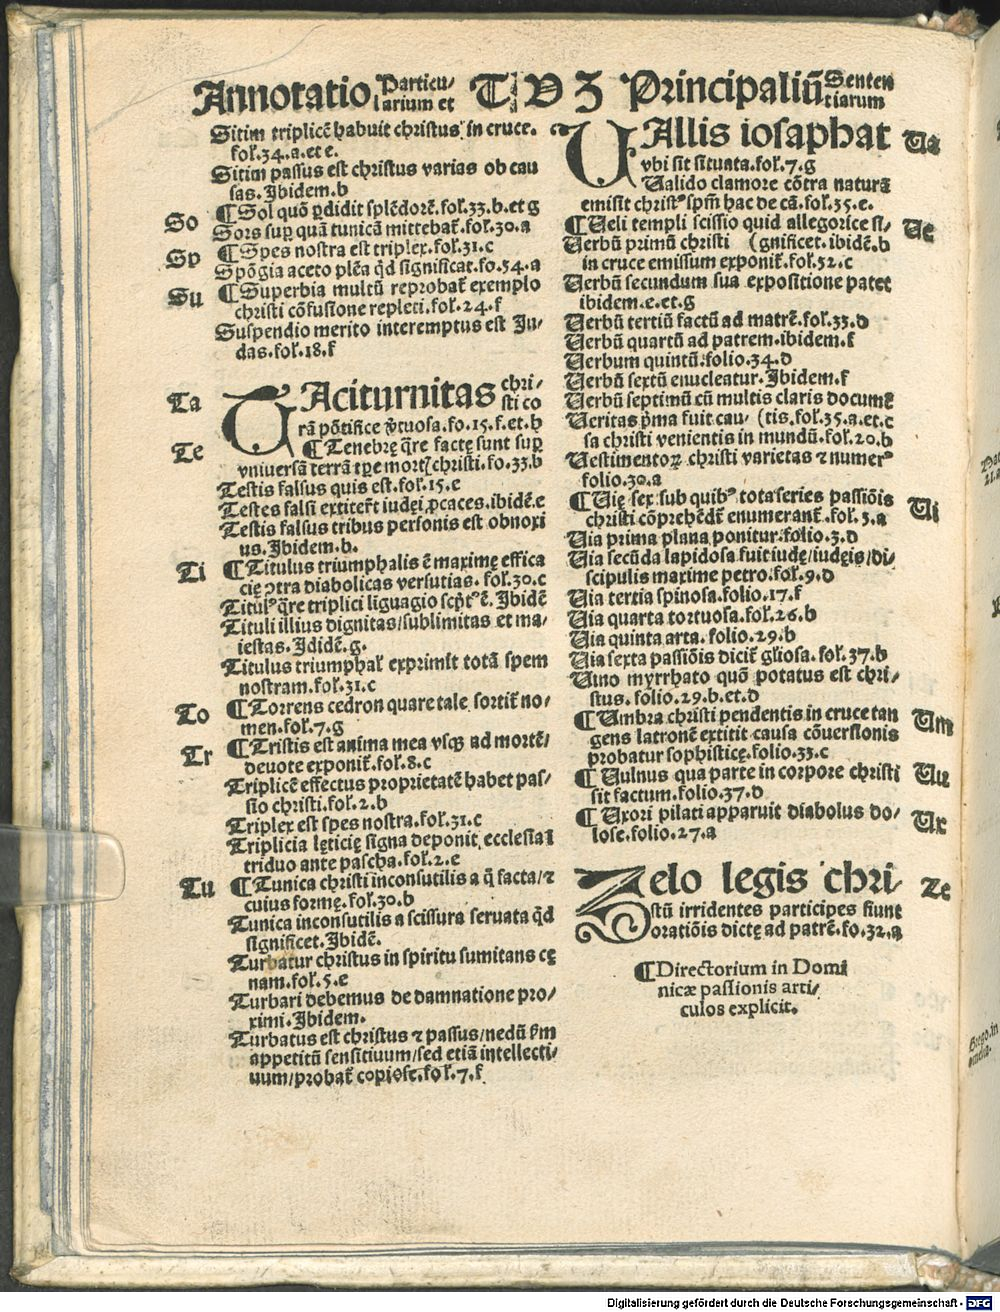 Annotatio Particularium et T V Z Principaliū Sententiarum
Sitim triplicē habuit christus in cruce.
fol̄.34.a.et e.
Sitim passus est christus varias ob cau
sas. Ibidem.b
So
¶ Sol quō ꝑdidit splēdorē.fol̄.33.b.et g
Sors suꝑ quā tunicā mittebat̄.fol̄.30.a
Sp
¶ Spes nostra est triplex.fol̄.31.c
Spōgia aceto plēa q̄d significat.fo.34.a
Su
¶ Superbia multū reprobat̄ exemplo
christi cōfusione repleti.fol̄.24.f
Suspendio merito interemptus est Iu/
das.fol̄.18.f
Ta
TAciturnitas chri/
sti co
rā pōtifice v̄tuosa.fo.15.f.et.h
Te
¶ Tenebrę q̄re factę sunt suꝑ
vniuersā terrā tꝑe mortꝭ christi.fo.33.b
Testis falsus quis est.fol̄.15.e
Testes falsi extiter̄t iudęi ꝓcaces.ibidē.e
Testis falsus tribus personis est obnoxi
us. Ibidem.b.
Ti
¶ Titulus triumphalis ē maximę effica
cię ꝯtra diabolicas versutias. fol̄.30.c
Titulꝰ q̄re triplici liguagio scp̄tꝰ ē. Ibidē
Tituli illius dignitas/sublimitas et ma/
iestas. Ididē.g.
Titulus triumphal̄ exprimit totā spem
nostram.fol̄.31.c
To
¶ Torrens cedron quare tale sortit̄ no/
men.fol̄.7.g
Tr
¶ Tristis est anima mea vsqꝫ ad mortē/
deuote exponit̄.fol̄.8.c
Triplicē effectus proprietatē habet pas/
sio christi.fol̄.2.b
Triplex est spes nostra.fol̄.31.c
Triplicia lęticię signa deponit ecclesia ĩ
triduo ante pascha.fol̄.2.e
Tu
¶ Tunica christi inconsutilis a q̄ facta/⁊
cuius formę.fol̄.30.b
Tunica inconsutilis a scissura seruata q̄d
significet. Ibidē.
Turbatur christus in spiritu sumitans cę
nam.fol̄.5.e
Turbari debemus de damnatione pro/
ximi. Ibidem.
Turbatus est christus ⁊ passus/nedū ẜm
appetitū sensitiuum/sed etiā intellecti/
uum/probat̄ copiose.fol̄.7.f
VAllis iosaphat
Va
vbi sit situata.fol̄.7.g
Valido clamore cōtra naturā
emisit christꝰ sp̄m hac de cā.fol̄.35.e.
Ve
¶ Veli templi scissio quid allegorice si/
Verbū primū christi (gnificet.ibidē.b
in cruce emissum exponit̄.fol̄.32.c
Verbū secundum sua expositione patet
ibidem.e.et.g
Verbū tertiū factū ad matrē.fol̄.33.d
Verbū quartū ad patrem.ibidem.f
Verbum quintū.folio.34.d
Verbū sextū enucleatur. Ibidem.f
Verbū septimū cū multis claris documē
Veritas p̄ma fuit cau/ (tis.fol̄.35.a.et.c
sa christi venientis in mundū.fol̄.20.b
Vestimentoꝝ christi varietas ⁊ numerꝰ
folio.30.a
Vi
¶ Vię sex sub quibꝰ tota series passiōis
christi cōprehēdit̄ enumerant̄.fol̄.3.a
Via prima plana ponitur.folio.3.d
Via secūda lapidosa fuit iudę/iudęis/di/
scipulis maxime petro.fol̄.9.d
Via tertia spinosa.folio.17.f
Via quarta tortuosa.fol̄.26.b
Via quinta arta.folio.29.b
Via sexta passiōis dicit̄ gl̄iosa.fol̄.37.b
Vino myrrhato quō potatus est chri/
stus. folio.29.b.et.d
Um
¶ Vmbra christi pendentis in cruce tan
gens latronē extitit causa cōuersionis
probatur sophisticę.folio.33.c
Uu
¶ Vulnus qua parte in corpore christi
sit factum.folio.37.d
Ux
¶ Vxori pilati apparuit diabolus do/
lose.folio.27.a
Ze
Zelo legis chri/
stū irridentes participes fiunt
oratiōis dictę ad patrē.fo.32.a
¶ Directorium in Domi
nicæ passionis arti/
culos explicit.
Digitalisierung gefördert durch die Deutsche Forschungsgemeinschaft - DFG